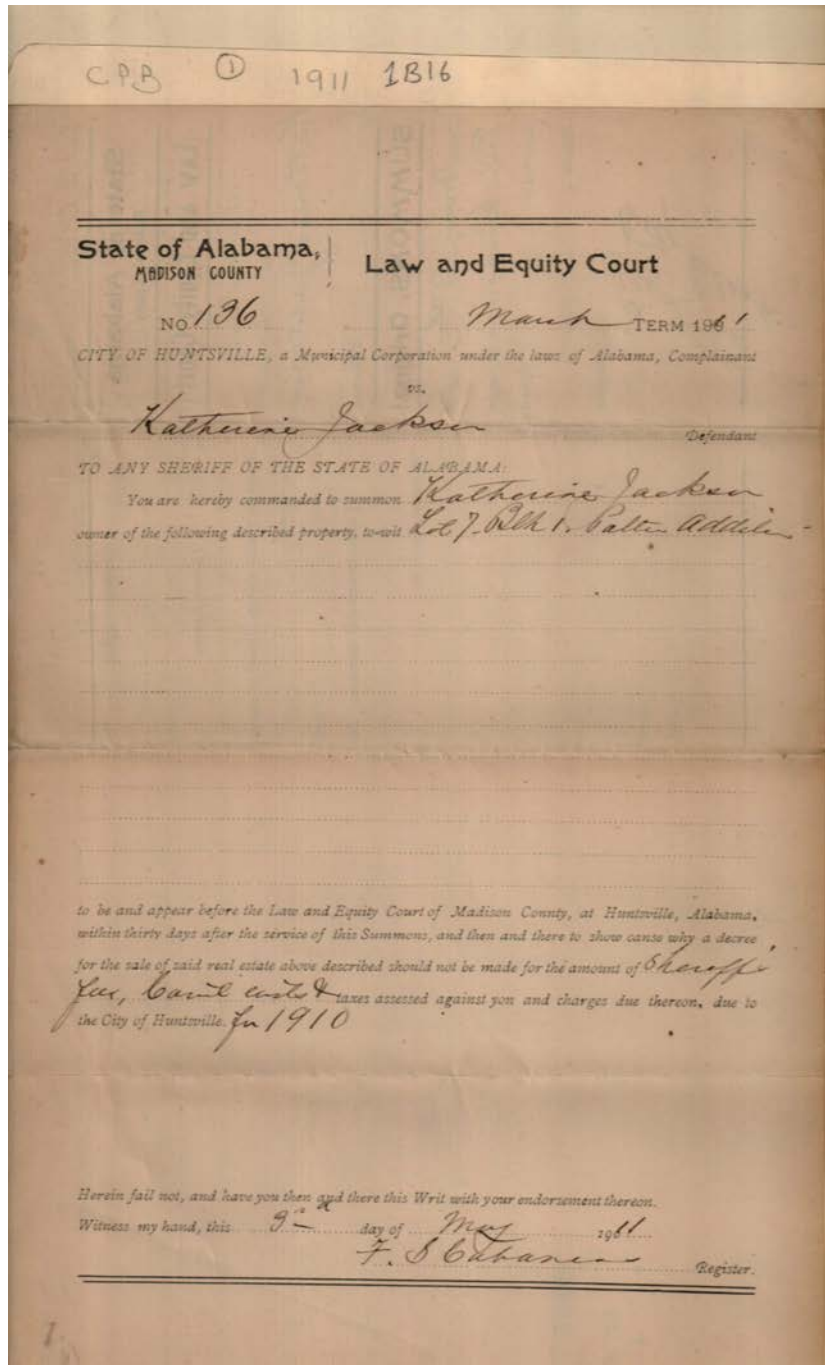 CPB ① 1911 1B16
State of Alabama, Law and Equity Court
MADISON COUNTY
No. 136 March TERM 1911
CITY OF HUNTSVILLE, a Municipal Corporation under the laws of Alabama, Complainant
vs.
Katherine Jackson Defendant
TO ANY SHERIFF OF THE STATE OF ALABAMA:
You are hereby commanded to summon Katherine Jackson
owner of the following described property, to-wit Lot 7. Blk 1. Addition
to be and appear before the Law and Equity Court of Madison County, at Huntsville, Alabama,
within thirty days after the service of this Summons, and then and there to show cause why a decree
for the sale of said real estate above described should not be made for the amount of Sheriff's
fees, Court costs & taxes assessed against you and charges due thereon, due to
the City of Huntsville. for 1910
Herein fail not, and have you then and there this Writ with your endorsement thereon.
Witness my hand, this day of May 1911
F. S Cabaniss Register.